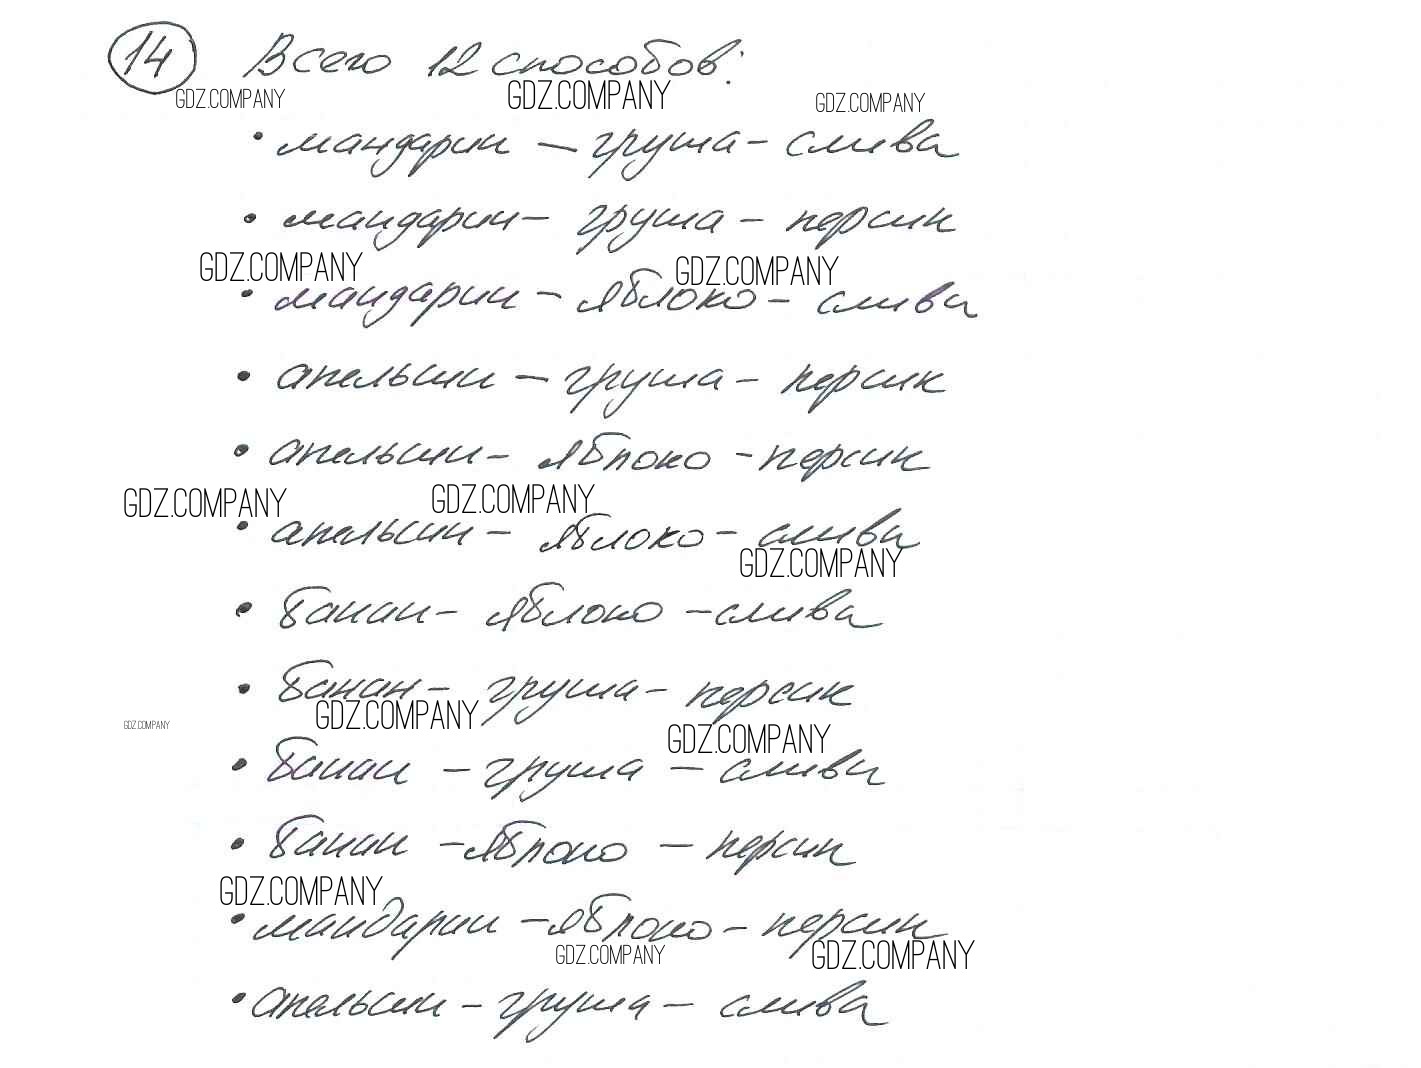 14 Всего 12 способов:
GDZ.COMPANY GDZ.COMPANY GDZ.COMPANY
• мандарин — груша – слива
• мандарин – груша – персик
GDZ.COMPANY GDZ.COMPANY
• мандарин – яблоко – слива
• апельсин – груша – персик
• апельсин – яблоко – персик
GDZ.COMPANY GDZ.COMPANY
• апельсин – яблоко – слива
GDZ.COMPANY
• банан – яблоко – слива
• банан – груша – персик
GDZ.COMPANY GDZ.COMPANY GDZ.COMPANY
• банан – груша – слива
• банан – яблоко – персик
GDZ.COMPANY
• мандарин – яблоко – персик
GDZ.COMPANY GDZ.COMPANY
• апельсин – груша – слива